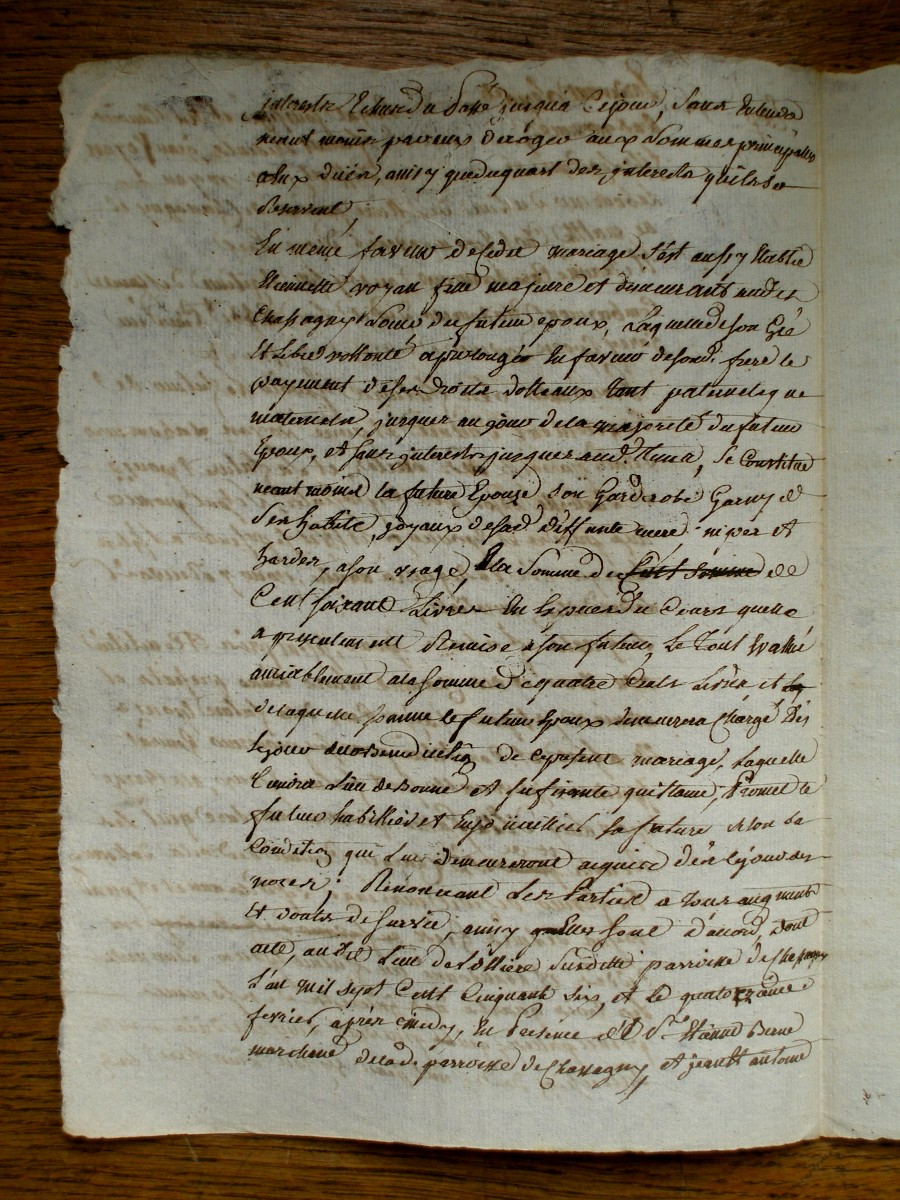 jnterestz Echus du Passé jusqu'a Cejour, Sans Entendre
neant moins par eux deroger aux Sommes principales
a Eux düés, ainsy que du quart des jnterestz qu'ils se
Reservent,
En méme faveur de Cedit mariage s'est aussy Etablie
Etiennette voyan fille majeure et demeurants aud. Lieu
Chassagny Soeur du futur epoux, Laquelle de son Gré
Et Libre vollonté a prolongée En faveur de sond. frere le
payement de ses droits dotteaux tant paternels que
maternels, jusques au jour de la majorité du futur
Epoux, et sans jnterestz jusques aud. tems, Se Constitue
neant moins la future Epouse son Garderobe Garny de
ses habits, joyaux de sad. diffunte mere nipes et
hardes, a son usage, la Somme de Cent Soixante de
Cent soixante Livres En Especes du Cours quelle
a presentement Remise a son futur, Le Tout Evalué
amiablement a la Somme de quatre Cents Livres et
de laquelle somme le futur Epoux demeurera Chargé Dés
Lejour de la Benediction de Cepresent mariage, Laquelle
tiendra Lieu de bonne et sufisante quittance, Promet le
futur habiller et Enjoüailler la future selon sa
Condition qui Luy demeureront acquise dés Lejour des
noces; Renonceant Les Parties a Tous augments
Et doates de survie, ainsy quElles sont d'acord, dont
acte, audit Lieu de Lolliere Susditte parroisse de Chassagny
L'an mil sept Cent Cinquante six, et le quatorzieme
fevrier, aprés midy, En Presence de Sr. Etienne Berne
marchand de lad. parroisse de Chassagny et jean Bt. antoine